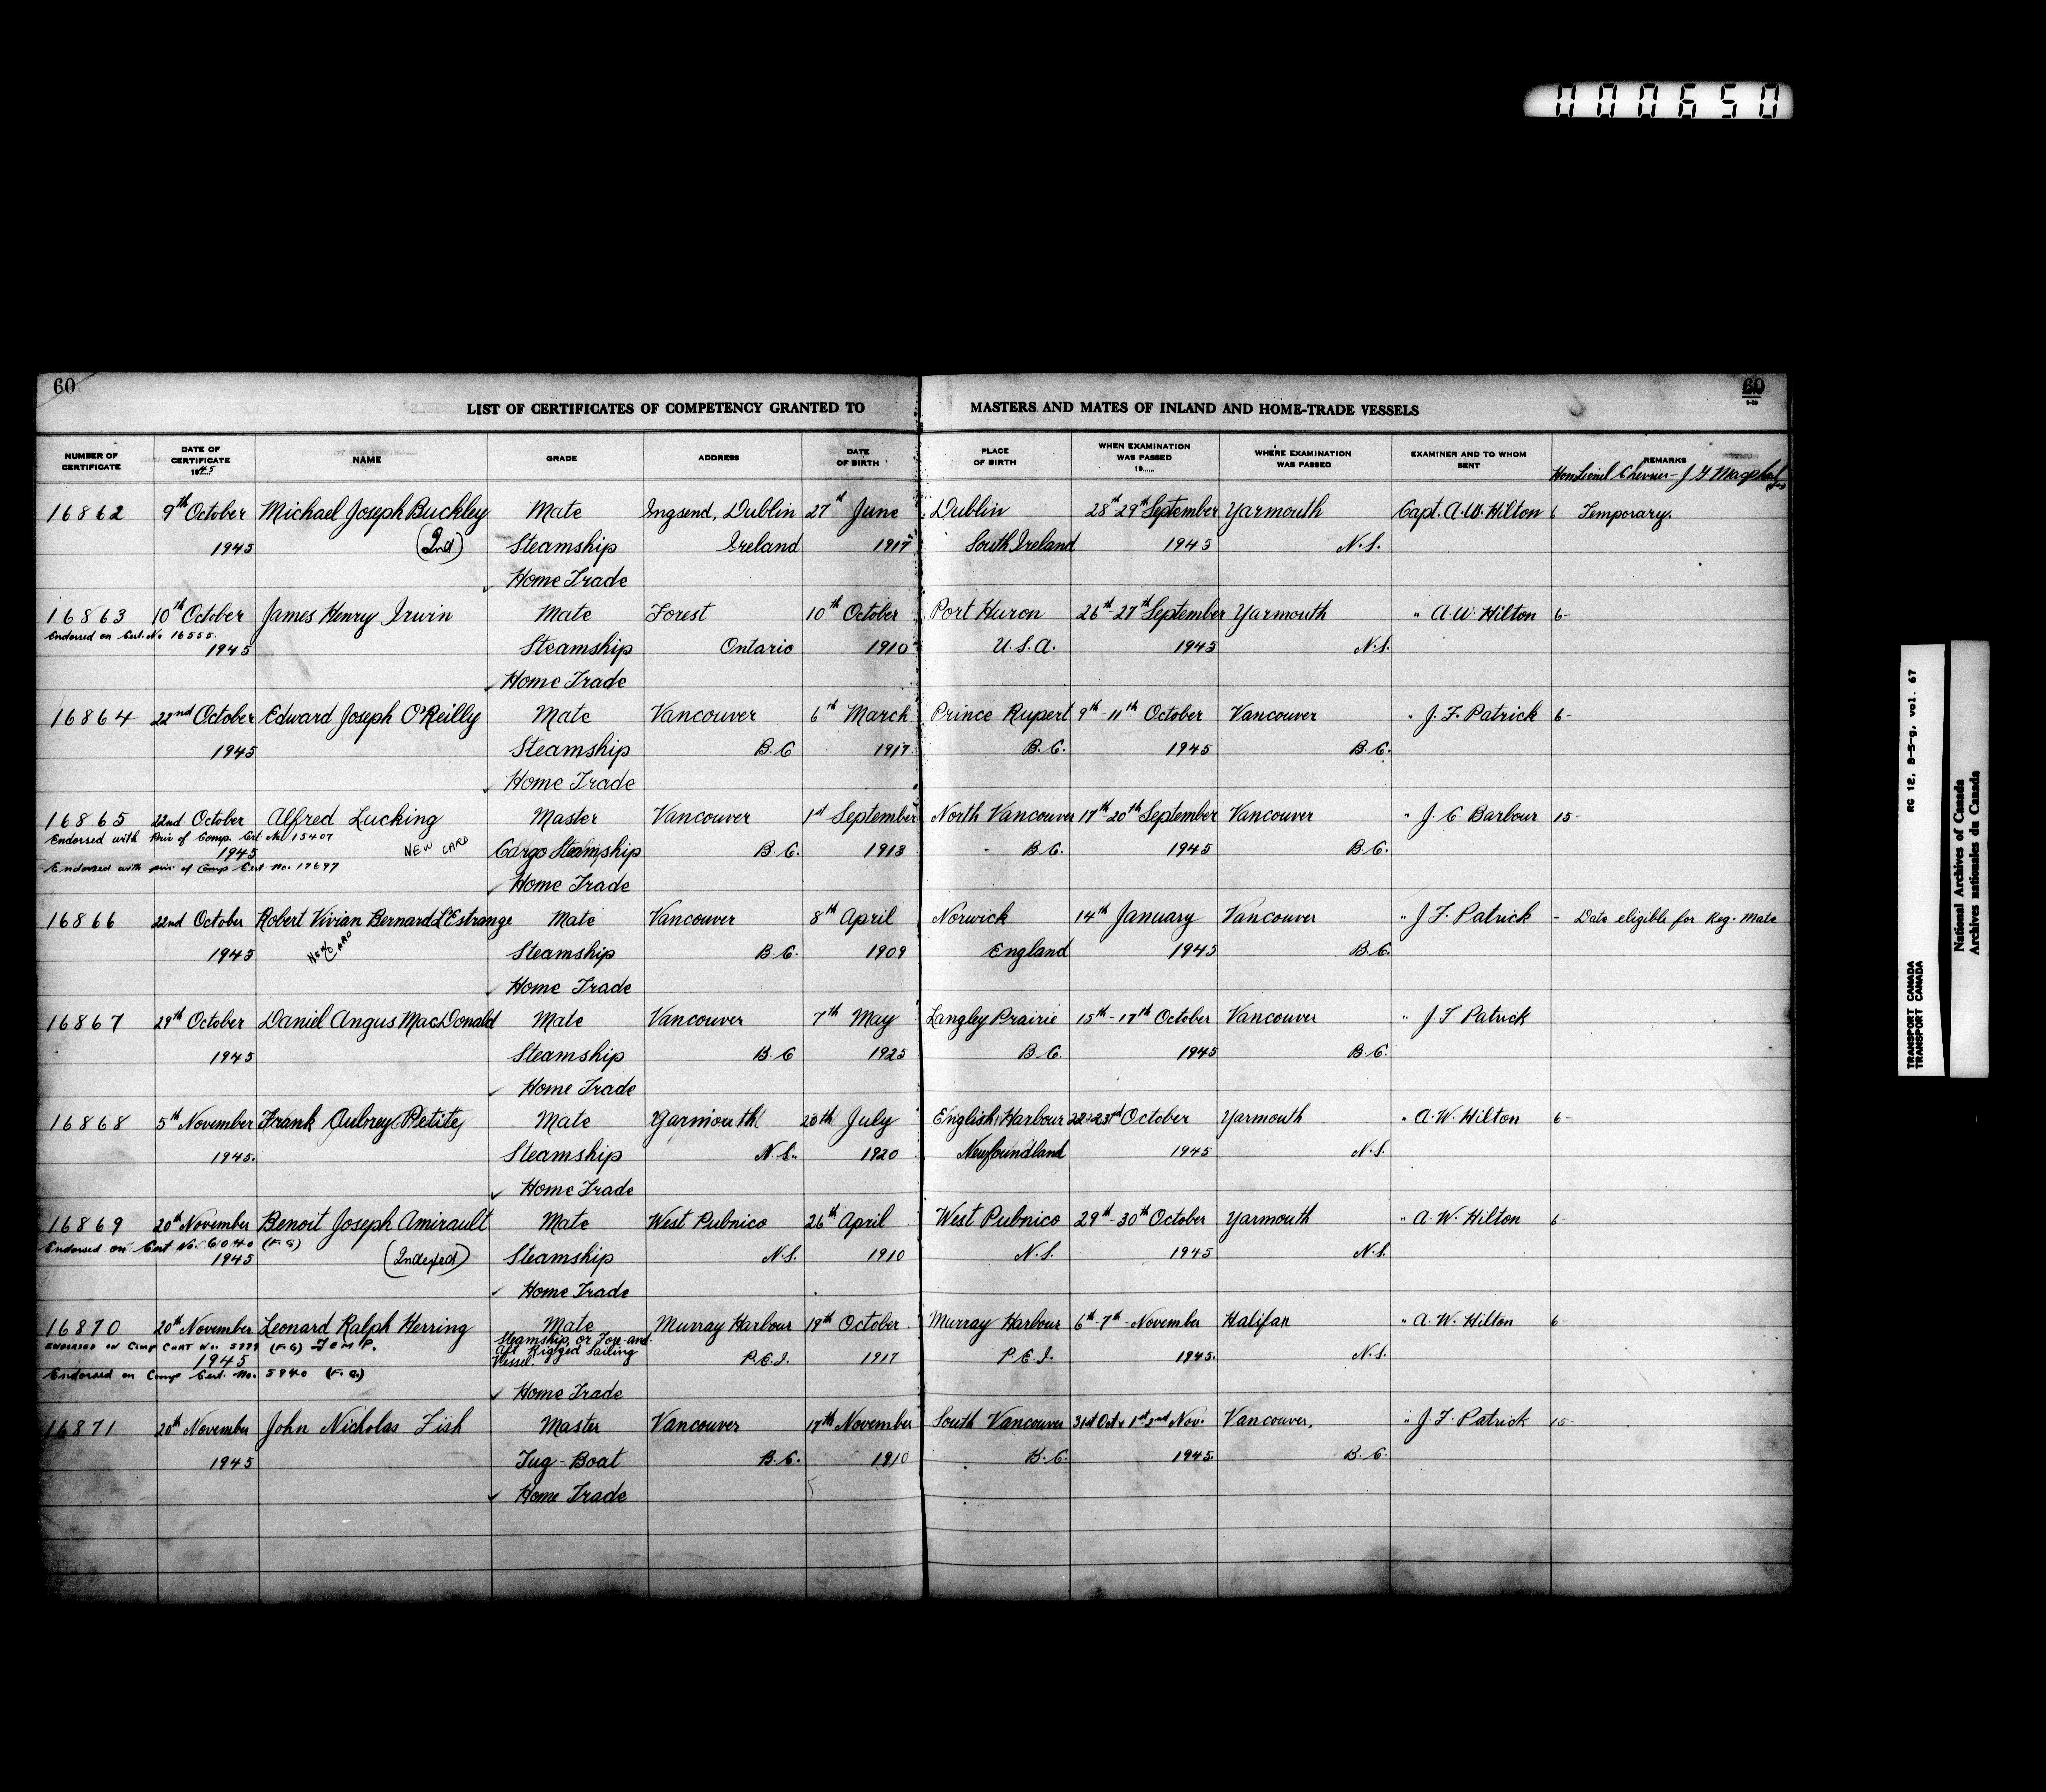 000650
60
60
LIST OF CERTIFICATES OF COMPETENCY GRANTED TO MASTERS AND MATES OF INLAND AND HOME-TRADE VESSELS
NUMBER OF CERTIFICATE
DATE OF CERTIFICATE 1945
NAME
GRADE
ADDRESS
DATE OF BIRTH
PLACE OF BIRTH
WHEN EXAMINATION WAS PASSED 19......
WHERE EXAMINATION WAS PASSED
EXAMINER AND TO WHOM SENT
REMARKS
Hon Lionel Chevrier - J G Macphail
16862 9th October Michael Joseph Buckley Mate Ingsend, Dublin 27th June Dublin 28th 29th September Yarmouth Capt. A.W. Hilton 6 Temporary.
1945 (2nd) Steamship Ireland 1917 South Ireland 1945 N.S.
Home Trade
16863 10th October James Henry Irwin Mate Forest 10th October Port Huron 26th-27th September Yarmouth " A.W. Hilton 6-
Endorsed on Cert. No 16555.
1945 Steamship Ontario 1910 U.S.A. 1945 N.S.
Home Trade
16864 22nd October Edward Joseph O'Reilly Mate Vancouver 6th March Prince Rupert 9th-11th October Vancouver " J. F. Patrick 6-
1945 Steamship B.C 1917. B.C. 1945 B.C.
Home Trade
16865 22nd October Alfred Lucking Master Vancouver 1st September North Vancouver 17th-20th September Vancouver " J. C Barbour 15-
Endorsed with Priv of Comp. Cert No 15407
1945 NEW CARD Cargo Steamship B.C. 1913 B.C. 1945 B.C.
Endorsed with priv. of Comp Cert No. 17697
Home Trade
16866 22nd October Robert Vivian Bernard L'Estrange Mate Vancouver 8th April Norwick 14th January Vancouver " J F. Patrick - Date eligible for Reg. Mate
1945 NEW CARD Steamship B.C. 1909 England 1945 B.C.
Home Trade
16867 29th October Daniel Angus MacDonald Mate Vancouver 7th May Langley Prairie 15th-17th October Vancouver " J F Patrick
1945 Steamship B.C 1925 B.C. 1945 B.C.
Home Trade
16868 5th November Frank Aubrey Petite Mate Yarmouth 20th July English Harbour October Yarmouth " A.W. Hilton 6-
1945. Steamship N.S. 1920 Newfoundland 1945 N.S.
Home Trade
16869 20th November Benoit Joseph Amirault Mate West Pubnico 26th April West Pubnico 29th-30th October Yarmouth " A.W. Hilton 6-
Endorsed on Cert No. 6040 (F.G)
1945 (Indexed) Steamship N.S. 1910 N.S. 1945 N.S.
Home Trade
16870 20th November Leonard Ralph Herring Mate Murray Harbour 19th October Murray Harbour 6th-7th-November Halifax " A.W. Hilton 6-
ENDORSED ON Comp CERT No. 5779 (F.G) TEMP. Steamship, or Fore-and-
1945 Aft Rigged Sailing Vessel. P.E.I. 1917 P.E.I. 1945. N.S.
Endorsed on Comp Cert. No. 5940 (F.G.)
Home Trade
16871 20th November John Nicholas Fish Master Vancouver 17th November South Vancouver 31st Oct & 1st-2nd Nov. Vancouver, " J. F. Patrick 15-
1945 Tug-Boat B.C. 1910 B.C. 1945. B.C.
Home Trade
TRANSPORT CANADA RG 12, B-5-g, vol. 67
TRANSPORT CANADA
National Archives of Canada
Archives nationales du Canada